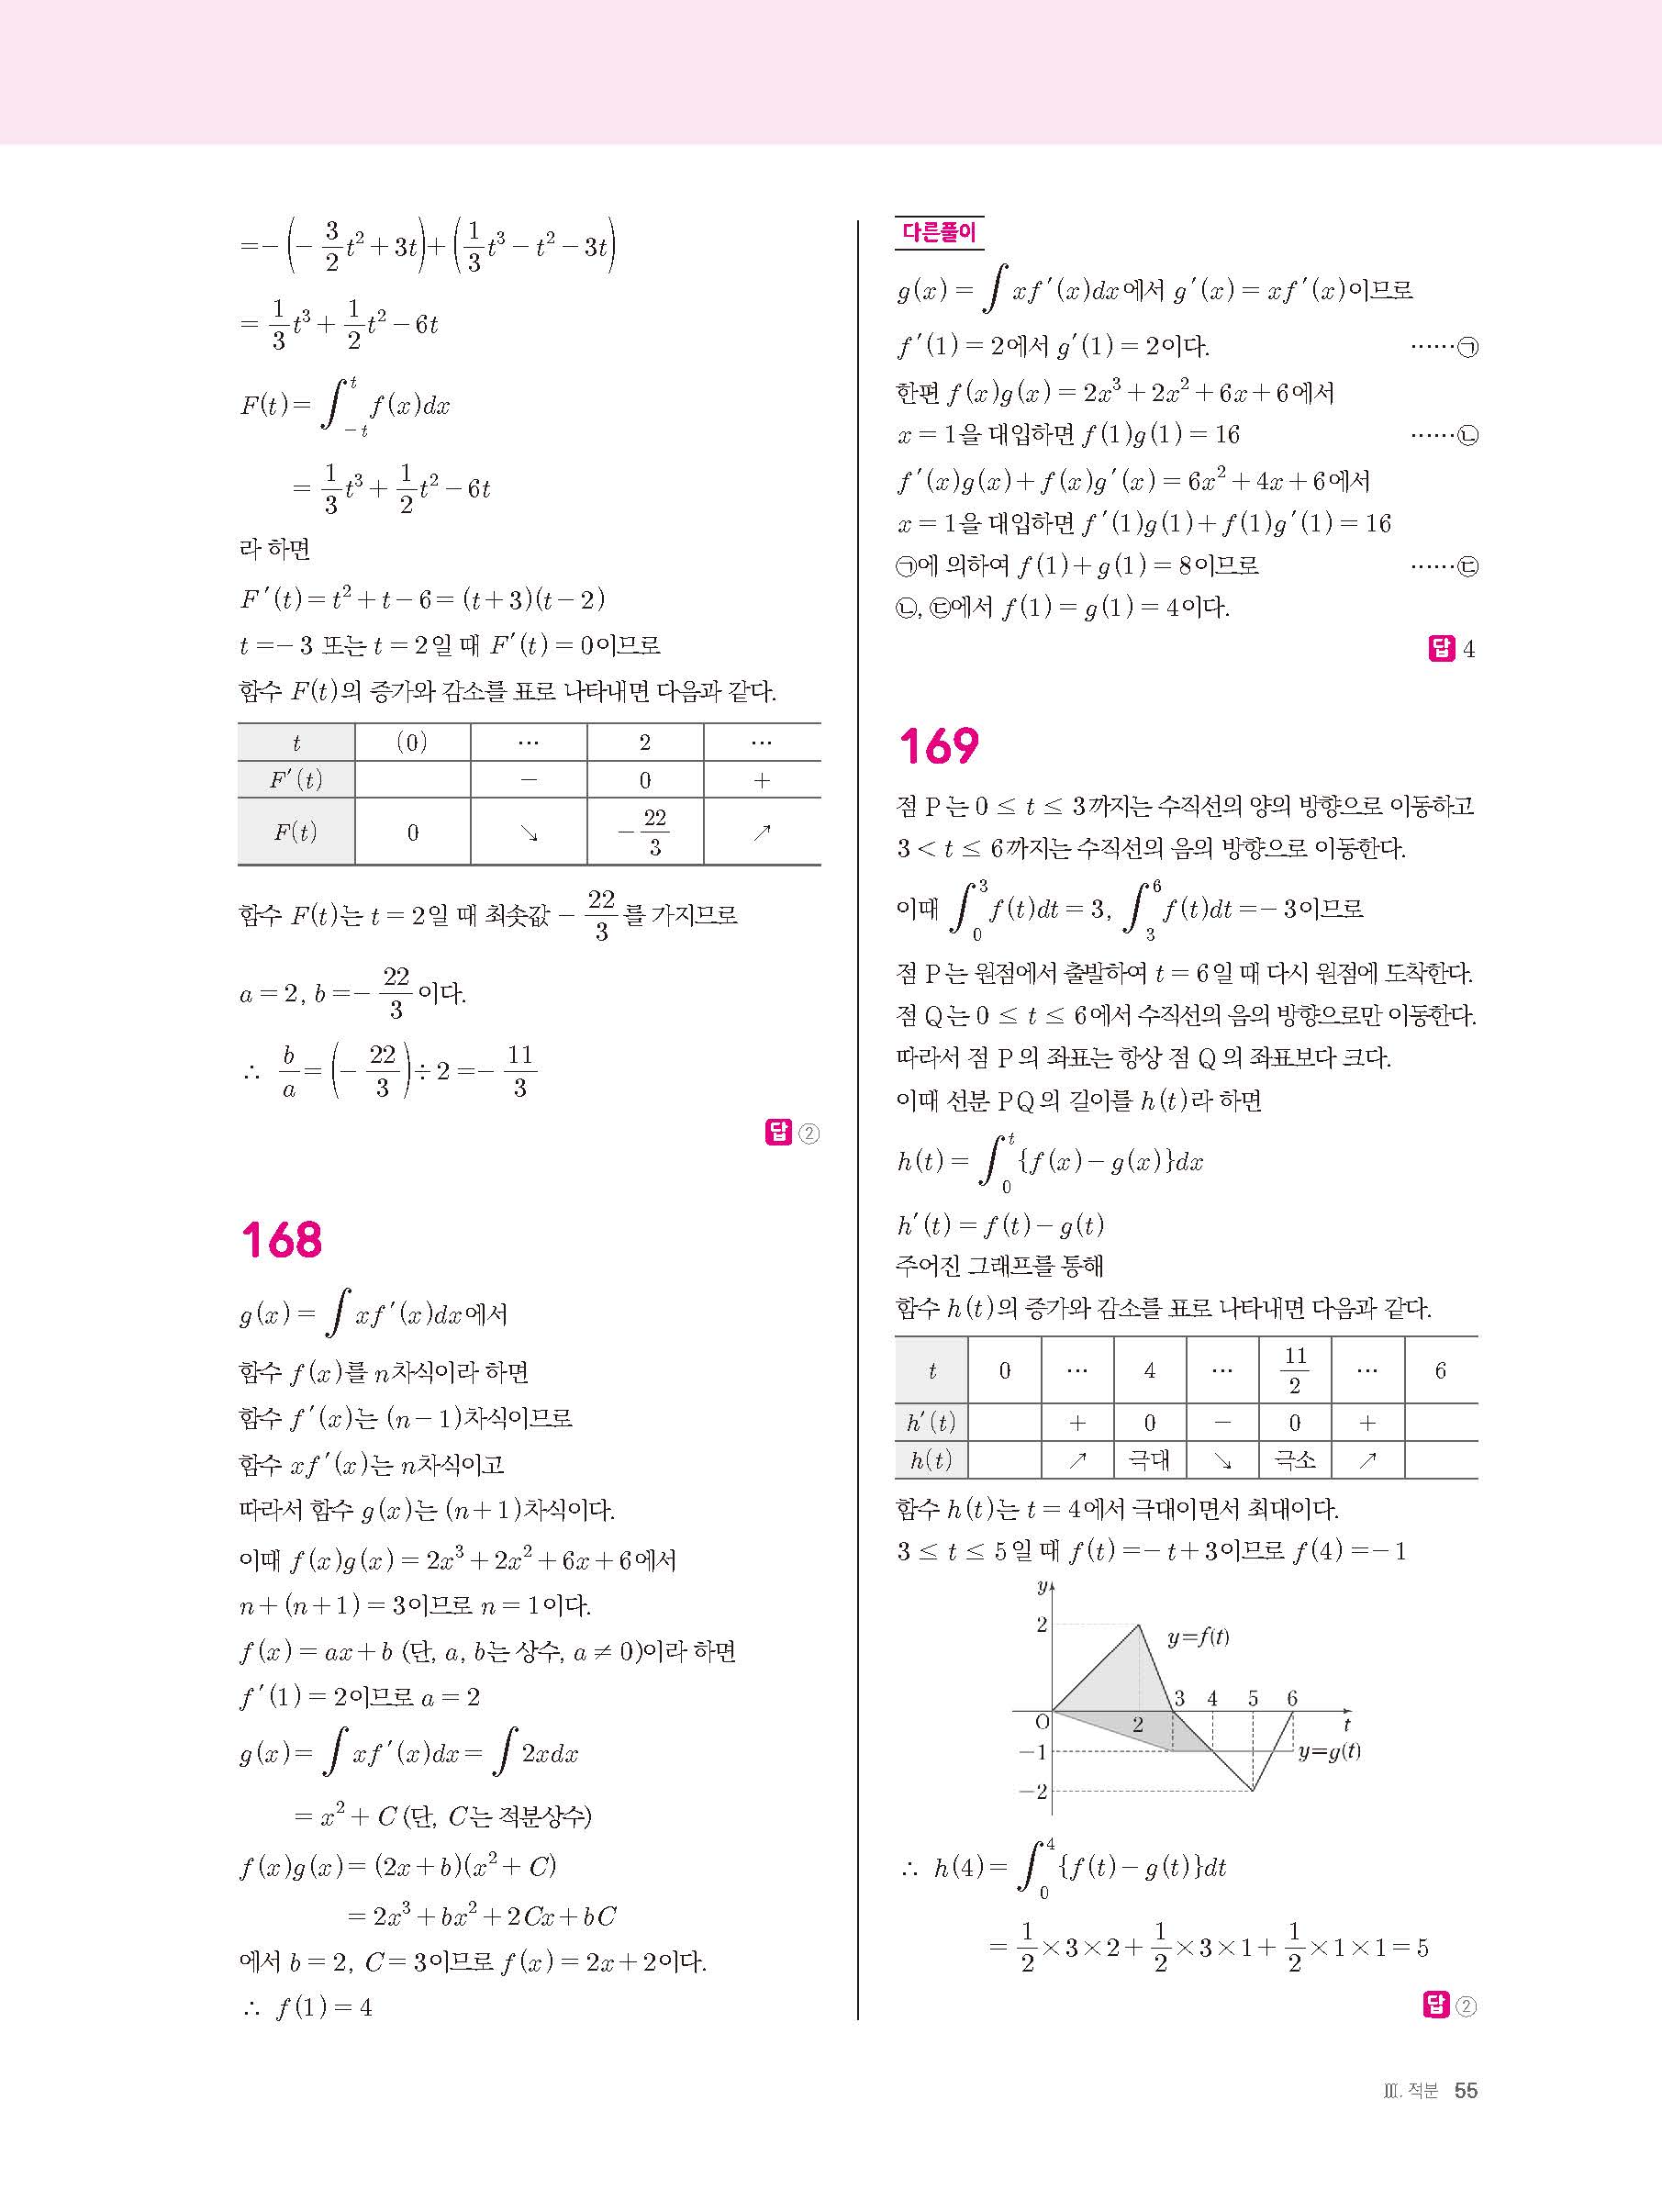 =−(−3/2 t²+3t)+(1/3 t³−t²−3t)
=1/3 t³+1/2 t²−6t
F(t)=∫_{−t}^{t} f(x)dx
=1/3 t³+1/2 t²−6t
라 하면
F′(t)=t²+t−6=(t+3)(t−2)
t=−3 또는 t=2일 때 F′(t)=0이므로
함수 F(t)의 증가와 감소를 표로 나타내면 다음과 같다.
t (0) ⋯ 2 ⋯
F′(t) − 0 +
F(t) 0 ↘ −22/3 ↗
함수 F(t)는 t=2일 때 최솟값 −22/3를 가지므로
a=2, b=−22/3이다.
∴ b/a=(−22/3)÷2=−11/3
답 ②
168
g(x)=∫xf′(x)dx에서
함수 f(x)를 n차식이라 하면
함수 f′(x)는 (n−1)차식이므로
함수 xf′(x)는 n차식이고
따라서 함수 g(x)는 (n+1)차식이다.
이때 f(x)g(x)=2x³+2x²+6x+6에서
n+(n+1)=3이므로 n=1이다.
f(x)=ax+b (단, a, b는 상수, a≠0)이라 하면
f′(1)=2이므로 a=2
g(x)=∫xf′(x)dx=∫2xdx
=x²+C (단, C는 적분상수)
f(x)g(x)=(2x+b)(x²+C)
=2x³+bx²+2Cx+bC
에서 b=2, C=3이므로 f(x)=2x+2이다.
∴ f(1)=4
다른풀이
g(x)=∫xf′(x)dx에서 g′(x)=xf′(x)이므로
f′(1)=2에서 g′(1)=2이다. ⋯⋯㉠
한편 f(x)g(x)=2x³+2x²+6x+6에서
x=1을 대입하면 f(1)g(1)=16 ⋯⋯㉡
f′(x)g(x)+f(x)g′(x)=6x²+4x+6에서
x=1을 대입하면 f′(1)g(1)+f(1)g′(1)=16
㉠에 의하여 f(1)+g(1)=8이므로 ⋯⋯㉢
㉡, ㉢에서 f(1)=g(1)=4이다.
답 4
169
점 P는 0≤t≤3까지는 수직선의 양의 방향으로 이동하고
3<t≤6까지는 수직선의 음의 방향으로 이동한다.
이때 ∫_{0}^{3} f(t)dt=3, ∫_{3}^{6} f(t)dt=−3이므로
점 P는 원점에서 출발하여 t=6일 때 다시 원점에 도착한다.
점 Q는 0≤t≤6에서 수직선의 음의 방향으로만 이동한다.
따라서 점 P의 좌표는 항상 점 Q의 좌표보다 크다.
이때 선분 PQ의 길이를 h(t)라 하면
h(t)=∫_{0}^{t} {f(x)−g(x)}dx
h′(t)=f(t)−g(t)
주어진 그래프를 통해
함수 h(t)의 증가와 감소를 표로 나타내면 다음과 같다.
t 0 ⋯ 4 ⋯ 11/2 ⋯ 6
h′(t) + 0 − 0 +
h(t) ↗ 극대 ↘ 극소 ↗
함수 h(t)는 t=4에서 극대이면서 최대이다.
3≤t≤5일 때 f(t)=−t+3이므로 f(4)=−1
y
2
y=f(t)
3 4 5 6
O 2 t
−1 y=g(t)
−2
∴ h(4)=∫_{0}^{4} {f(t)−g(t)}dt
=1/2×3×2+1/2×3×1+1/2×1×1=5
답 ②
Ⅲ. 적분 55